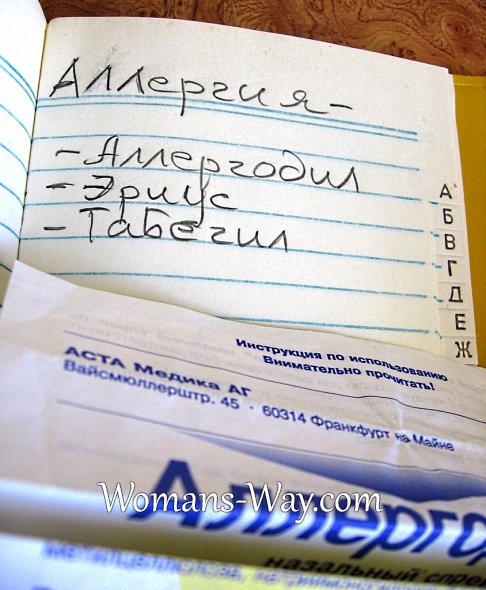 Аллергия-
- Аллергодил
- Эриус
- Табегил
А
Б
В
Г
Д
Е
Ж
Инструкция по использованию
Внимательно прочитать!
АСТА Медика АГ
Вайсмюллерштр. 45 · 60314 Франкфурт на Майне
Womans-Way.com
Аллерго
назальный спре